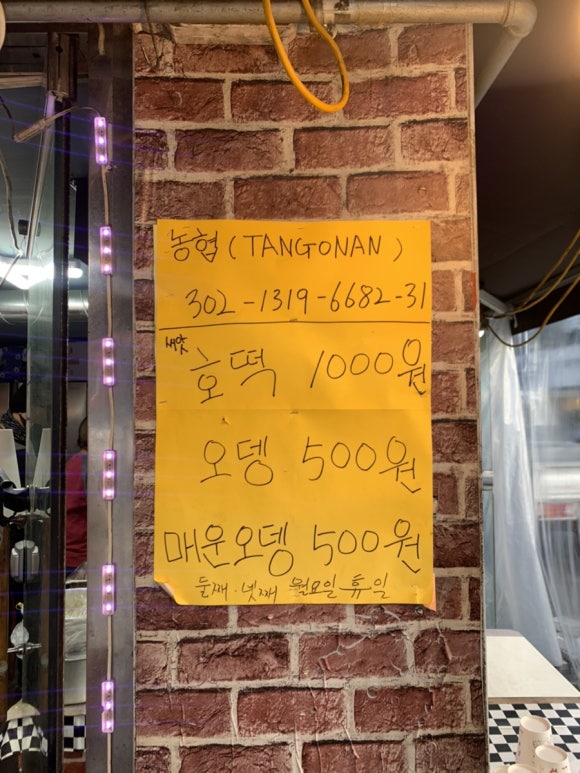 농협 (TANGONAN)
302-1319-6682-31
새맛
호떡 1000원
오뎅 500원
매운오뎅 500원
둘째·넷째 월요일 휴일